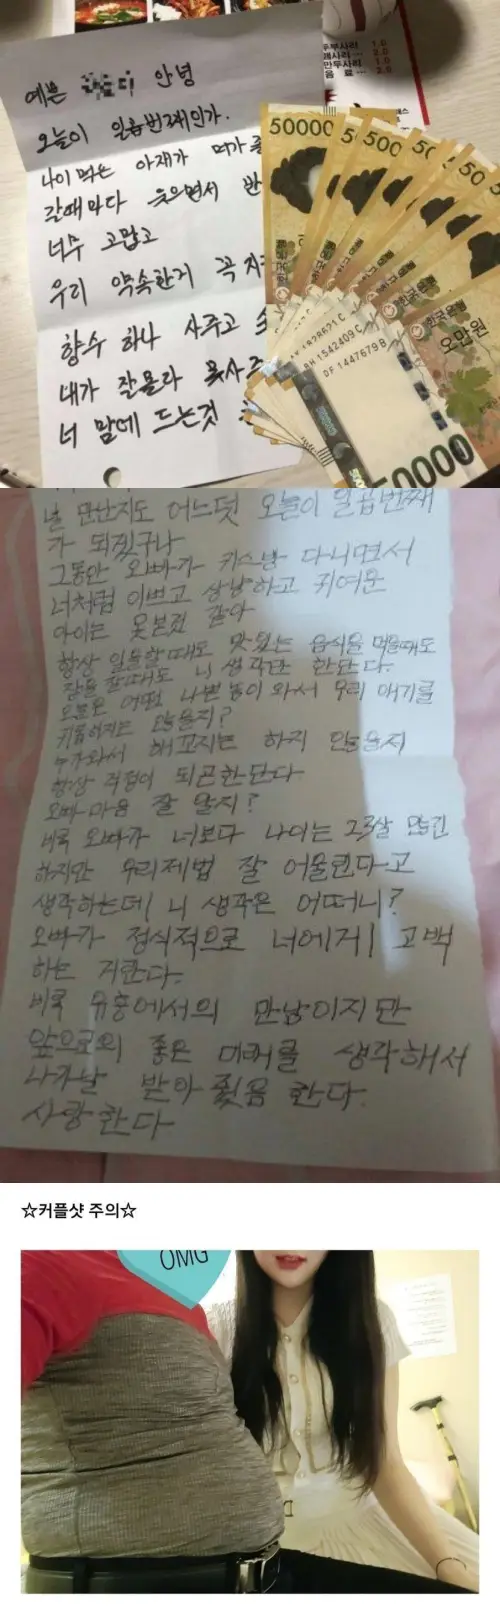 두부사리 1.0
만두사리 1.0
음 료 ... 2.0
예쁜 안녕
오늘이 일곱번째인가.
나이먹은 아재가 머가 좋
갈때마다 웃으면서 반
너수 고맙고
우리 약속한거 꼭 지
향수 하나 사주고
내가 잘몰라 못사주
너 맘에 드는것
50000
500
50
한국은행
한국은행
오만원
BH1542409C
DF1447679B
50000
널 만난지도 어느덧 오늘이 일곱번째
가 되겠구나
그동안 오빠가 키스방 다니면서
너처럼 이쁘고 상냥하고 귀여운
아이는 못본것 같아
항상 일을할때도 맛있는 음식을 먹을때도
잠을 잘때도 니 생각만 한단다.
오늘은 어떤 나쁜놈이 와서 우리 애기를
괴롭히지는 않을지?
누가와서 해꼬지는 하지 않을지
항상 걱정이 되곤한단다
오빠 마음 잘 알지?
비록 오빠가 너보다 나이는 23살 많긴
하지만 우리제법 잘 어울린다고
생각하는데 니 생각은 어떠니?
오빠가 정식적으로 너에게 고백
하는 거란다.
비록 유흥에서의 만남이지만
앞으로의 좋은 미래를 생각해서
나가날 받아 줬음 한다.
사랑한다
☆커플샷 주의☆
OMG